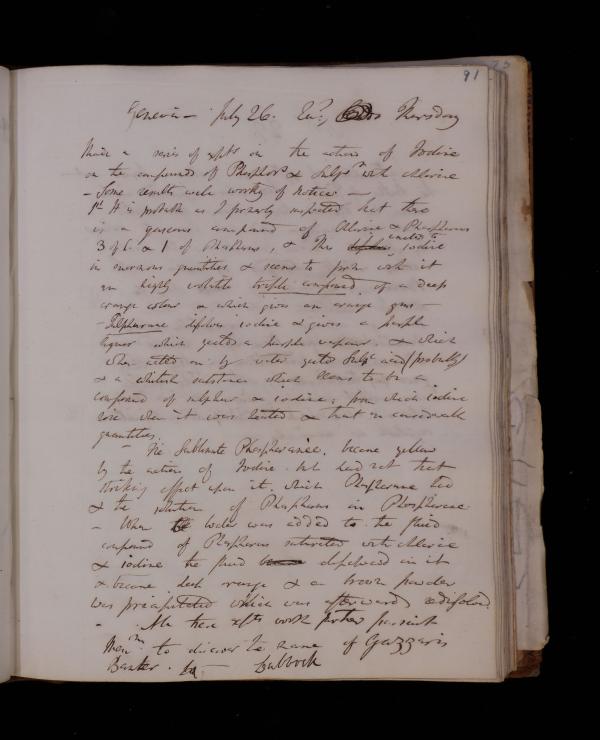 91
Geneva - July 26. Thursday
Made a series of expts on the action of Iodine
on the compounds of Phosphors & Sulpr with chlorine
- Some results were worthy of notice -
1st It is probable as I formerly suspected that there
is a gaseous compound of Chlorine & Phosphorus
3 of & 1 of Phosphorus, & this unites to iodine
in enormous quantities & seems to form with it
an highly volatile triple compound of a deep
orange colour & which gives an orange gas -
- Sulphurane dissolves iodine & gives a purple
liquor which yields a purple vapour. & which
when acted on by water yields Sulpc acid (probably)
& a whitish substance which seems to be a
compound of sulphur & iodine; from which iodine
rose when it was heated & that in considerable
quantities.
- The Sublimate Phosphorane, became yellow
by the action of Iodine but had not that
striking effect upon it, which Phosphorane did
& the solution of Phosphorus in Phosphorane
- When water was added to the fluid
compound of Phosphorus saturated with Chlorine
& iodine the fluid dissolved in it
& became deep orange & a brown powder
was precipitated which was afterwards redissolved
- All these expts worth further pursuit
Mem to discover the name of Gazzaris
Banker.